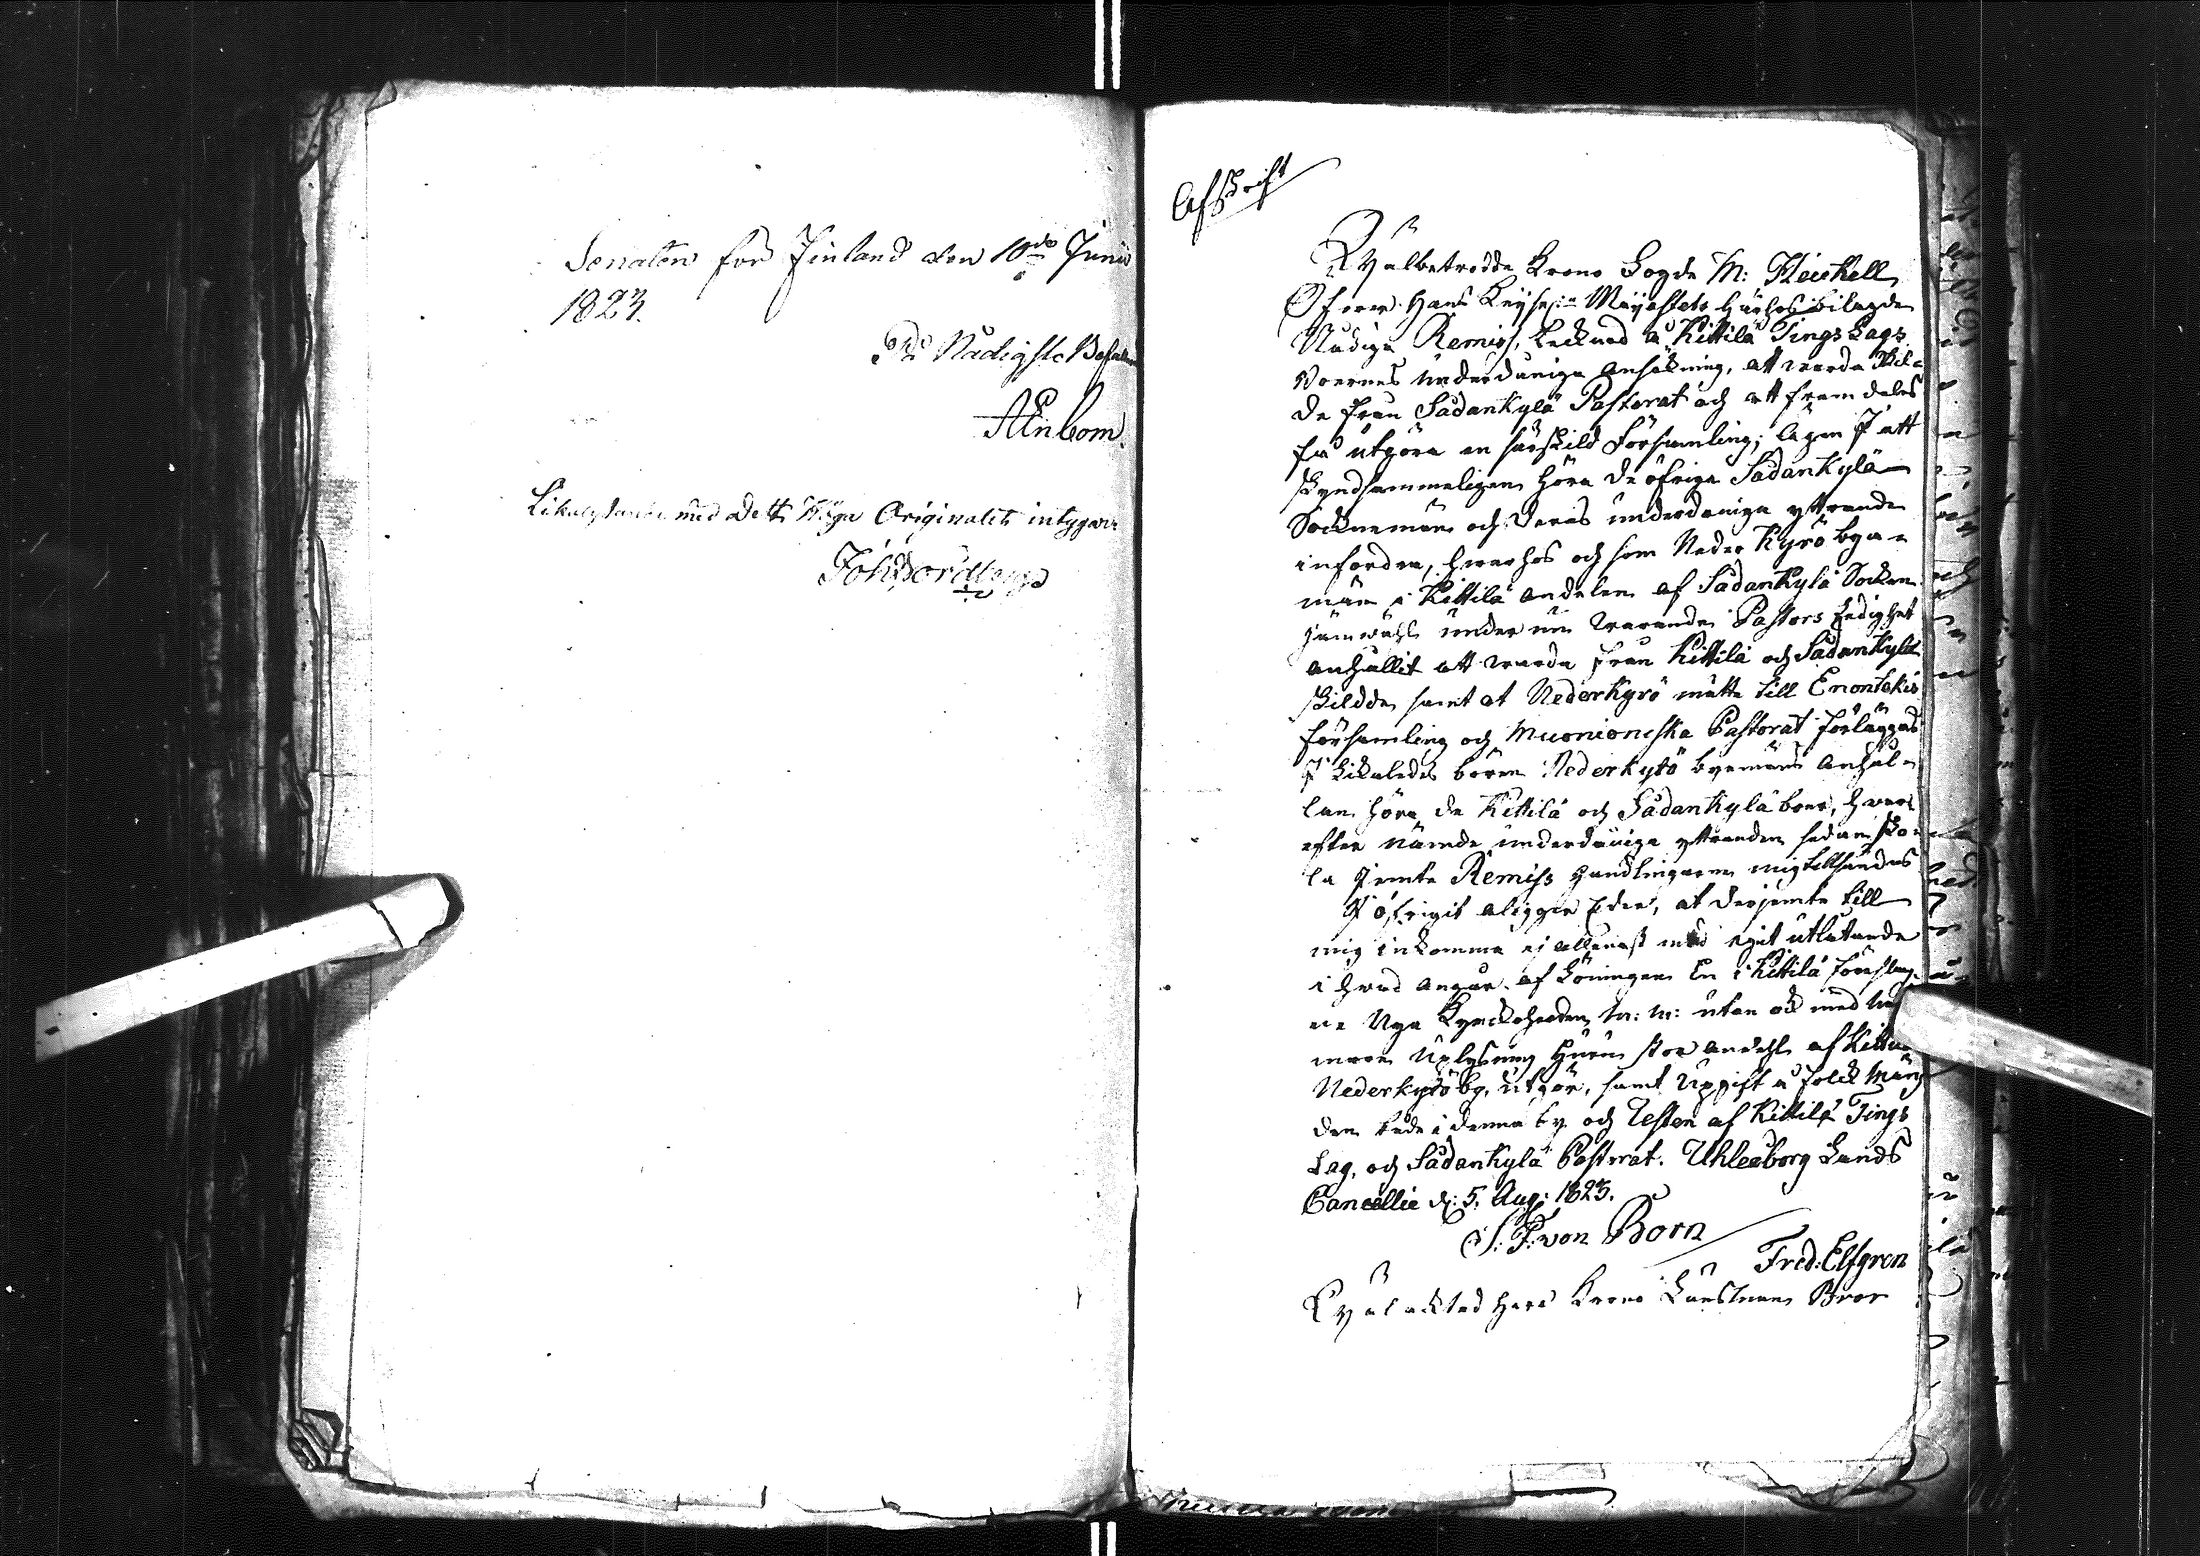 Senaten för Finland den 10de Junii
1823.
På Nådigste Befalln
AEnbom.
Likalydande med Dett Höga Originalet intygar
Joh: Nordberg
Afskrift
Wälbetrodde Krono Fogde M: Heickell
Öfver Hans Keyserl:a Mayestets härhos bilagde
Nådiga Remiss, tecknad å Kittilä Tings Lags
Boernes underdåniga ansökning, att warda skil-
de från Sådankylä Pastorat och att framdeles
få utgöra en särskild Församling; ägen I att
skyndsammeligen höra de öfriga Sådankylä
Sockenemän och deras underdåniga yttrande
infordra, hvarhos och som Neder Kyrö bya-
män i Kittilä andelen af Sådankylä Socken
jämwähl under nu warande Pastors Ledighet
anhållit att warda från Kittilä och Sådankylä
skildde, samt at NederKyrö måtte till Enontekis
församling och Muonioniska Pastorat förläggas
I likaledes böra Nederkyrö byemäns anhål-
lan höra de Kittilä och Sådankylä boer, hvar-
efter nämde underdåniga yttranden sedan sko-
la Jemte Remiss handlingarne mig tillsändas
I öfrigit åligger Eder, at derjemte till
mig inkomma ej allenast med egit utlåtande
i hvad angår aflöningen En i Kittilä föreslag-
ne Nya Kyrckoherden, m: m: utan ock med
mare Uplysning Huru stor andehl af Kittilä
Nederkyrö by, utgör, samt Uppgift å folck mäng
den både i denna by och Resten af Kittilä Tings
Lag, och Sådankylä Pastorat. Uhleåborg Lands
Cancellie d: 5. Aug: 1823.
S: F: von Born
Fred: Elfgren
Wälacktad Herr Krono Länsman Bror